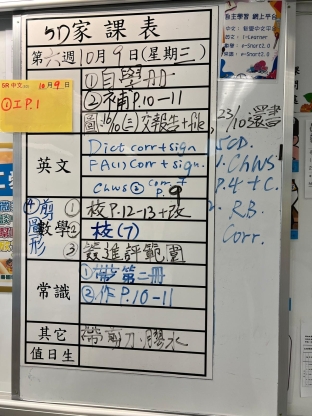 5D家課表
第六週10月9日(星期三)
5R中文 10月9日
①工P.1
①自學冊
②補P.10-11
圖:16/10(三)交報告+file
23/10還書
英文
Dict corr+sign
FA(1) Corr+sign.
Chws② Corr+P.9
5CD.
1. Chws P.4+C.
2. R.B. Corr.
④剪圖形
數學
① 校P.12-13+改
② 校(7)
③ 簽進評範圍
常識
①第二冊
②作P.10-11
其它
帶剪刀、膠水
值日生
自主學習 網上平台